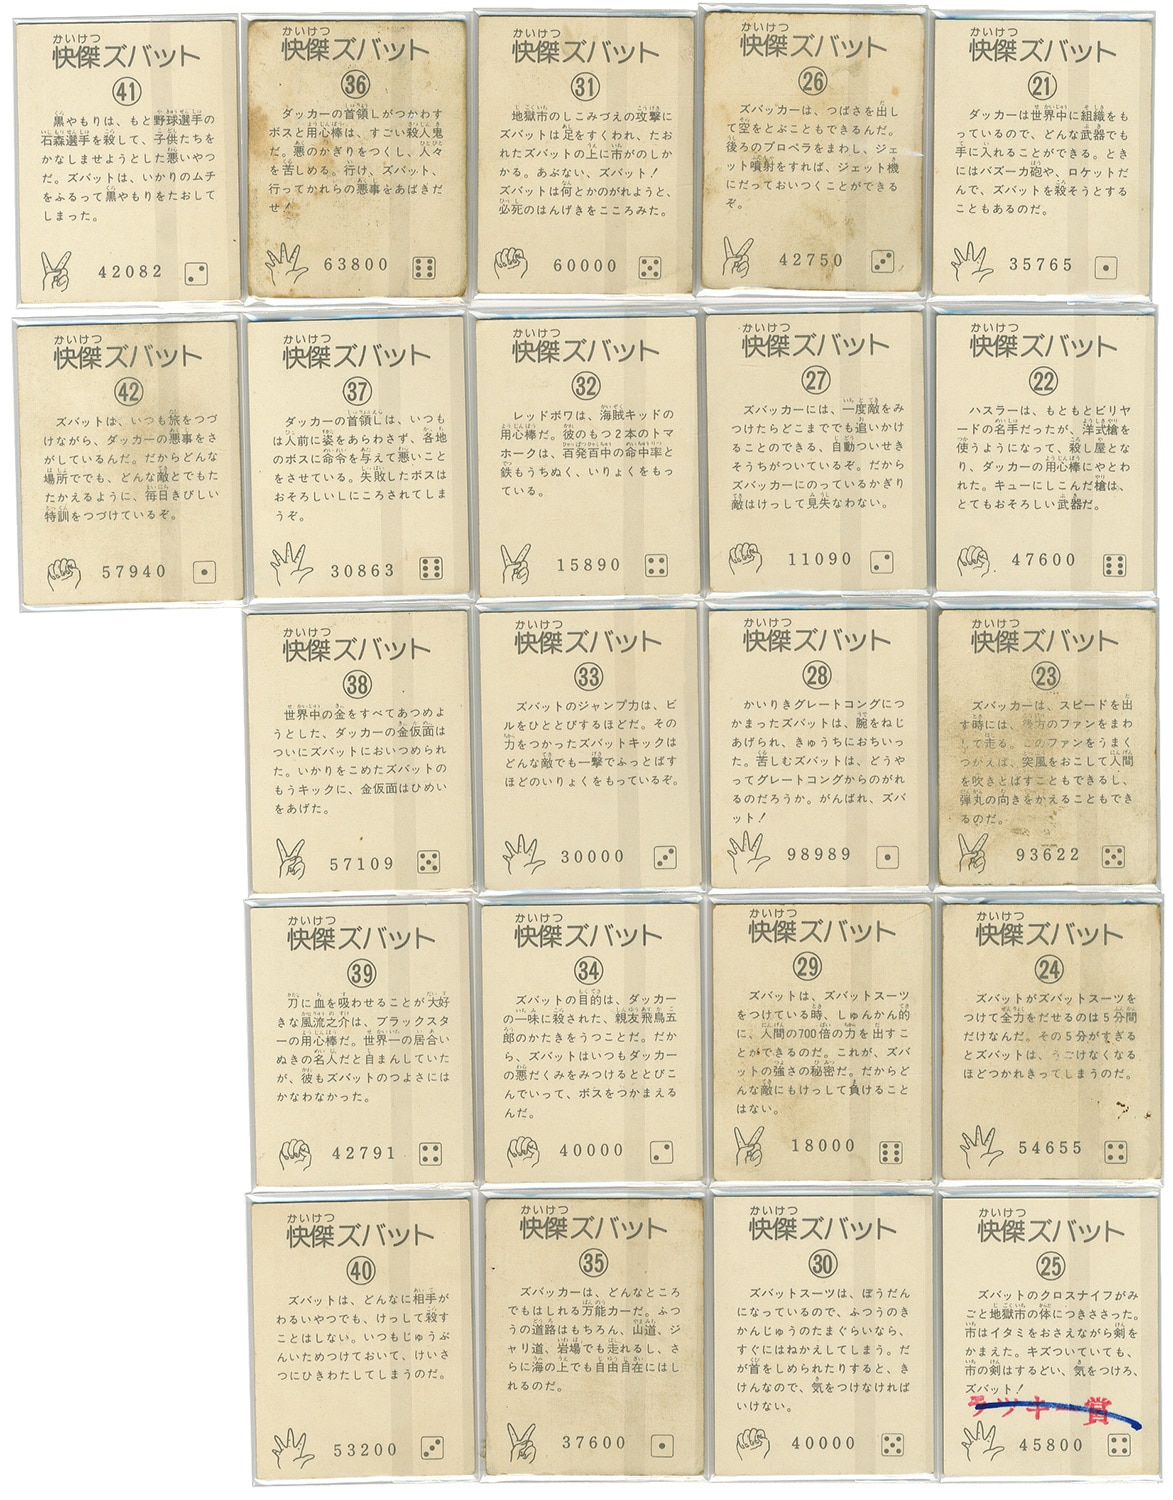 かいけつ
快傑ズバット
41
黒やもりは、もと野球選手の
石森選手を殺して、子供たちを
かなしませようとした悪いやつ
だ。ズバットは、いかりのムチ
をふるって黒やもりをたおして
しまった。
42082
かいけつ
快傑ズバット
36
ダッカーの首領Lがつかわす
ボスと用心棒は、すごい殺人鬼
だ。悪のかぎりをつくし、人々
を苦しめる。行け、ズバット、
行ってかれらの悪事をあばきだ
せ!
63800
かいけつ
快傑ズバット
31
地獄市のしこみづえの攻撃に
ズバットは足をすくわれ、たお
れたズバットの上に市がのしか
かる。あぶない、ズバット!
ズバットは何とかのがれようと、
必死のはんげきをこころみた。
60000
かいけつ
快傑ズバット
26
ズバッカーは、つばさを出し
て空をとぶこともできるんだ。
後ろのプロペラをまわし、ジェ
ット噴射をすれば、ジェット機
にだっておいつくことができる
ぞ。
42750
かいけつ
快傑ズバット
21
ダッカーは世界中に組織をも
っているので、どんな武器でも
手に入れることができる。とき
にはバズーカ砲や、ロケットだ
んで、ズバットを殺そうとする
こともあるのだ。
35765
かいけつ
快傑ズバット
42
ズバットは、いつも旅をつづ
けながら、ダッカーの悪事をさ
がしているんだ。だからどんな
場所ででも、どんな敵とでもた
たかえるように、毎日きびしい
特訓をつづけているぞ。
57940
かいけつ
快傑ズバット
37
ダッカーの首領Lは、いつも
は人前に姿をあらわさず、各地
のボスに命令を与えて悪いこと
をさせている。失敗したボスは
おそろしいLにころされてしま
うぞ。
30863
かいけつ
快傑ズバット
32
レッドボワは、海賊キッドの
用心棒だ。彼のもつ2本のトマ
ホークは、百発百中の命中率と
鉄もうちぬく、いりょくをもっ
ている。
15890
かいけつ
快傑ズバット
27
ズバッカーには、一度敵をみ
つけたらどこまででも追いかけ
ることのできる、自動ついせき
そうちがついているぞ。だから
ズバッカーにのっているかぎり
敵はけっして見失なわない。
11090
かいけつ
快傑ズバット
22
ハスラーは、もともとビリヤ
ードの名手だったが、洋式槍を
使うようになって、殺し屋とな
り、ダッカーの用心棒にやとわ
れた。キューにしこんだ槍は、
とてもおそろしい武器だ。
47600
かいけつ
快傑ズバット
38
世界中の金をすべてあつめよ
うとした、ダッカーの金仮面は
ついにズバットにおいつめられ
た。いかりをこめたズバットの
もうキックに、金仮面はひめい
をあげた。
57109
かいけつ
快傑ズバット
33
ズバットのジャンプ力は、ビ
ルをひととびするほどだ。その
力をつかったズバットキックは
どんな敵でも一撃でふっとばす
ほどのいりょくをもっているぞ。
30000
かいけつ
快傑ズバット
28
かいりきグレートコングにつ
かまったズバットは、腕をねじ
あげられ、きゅうちにおちいっ
た。苦しむズバットは、どうや
ってグレートコングからのがれ
るのだろうか。がんばれ、ズバ
ット!
98989
かいけつ
快傑ズバット
23
ズバッカーは、スピードを出
す時には、後方のファンをまわ
して走る。このファンをうまく
つかえば、突風をおこして人間
を吹きとばすこともできるし、
弾丸の向きをかえることもでき
るのだ。
93622
かいけつ
快傑ズバット
39
刀に血を吸わせることが大好
きな風流之介は、ブラックスタ
ーの用心棒だ。世界一の居合い
ぬきの名人だと自まんしていた
が、彼もズバットのつよさには
かなわなかった。
42791
かいけつ
快傑ズバット
34
ズバットの目的は、ダッカー
の一味に殺された、親友飛鳥五
郎のかたきをうつことだ。だか
ら、ズバットはいつもダッカー
の悪だくみをみつけるととびこ
んでいって、ボスをつかまえる
んだ。
40000
かいけつ
快傑ズバット
29
ズバットは、ズバットスーツ
をつけている時、しゅんかん的
に、人間の700倍の力を出すこ
とができるのだ。これが、ズバ
ットの強さの秘密だ。だからど
んな敵にもけっして負けること
はない。
18000
かいけつ
快傑ズバット
24
ズバットがズバットスーツを
つけて全力をだせるのは5分間
だけなんだ。その5分がすぎる
とズバットは、うごけなくなる
ほどつかれきってしまうのだ。
54655
かいけつ
快傑ズバット
40
ズバットは、どんなに相手が
わるいやつでも、けっして殺す
ことはしない。いつもじゅうぶ
んいためつけておいて、けいさ
つにひきわたしてしまうのだ。
53200
かいけつ
快傑ズバット
35
ズバッカーは、どんなところ
でもはしれる万能カーだ。ふつ
うの道路はもちろん、山道、ジ
ャリ道、岩場でも走れるし、さ
らに海の上でも自由自在にはし
れるのだ。
37600
かいけつ
快傑ズバット
30
ズバットスーツは、ぼうだん
になっているので、ふつうのき
かんじゅうのたまぐらいなら、
すぐにはねかえしてしまう。だ
が首をしめられたりすると、き
けんなので、気をつけなければ
いけない。
40000
かいけつ
快傑ズバット
25
ズバットのクロスナイフがみ
ごと地獄市の体につきささった。
市はイタミをおさえながら剣を
かまえた。キズついていても、
市の剣はするどい、気をつけろ、
ズバット!
ラッキー賞
45800